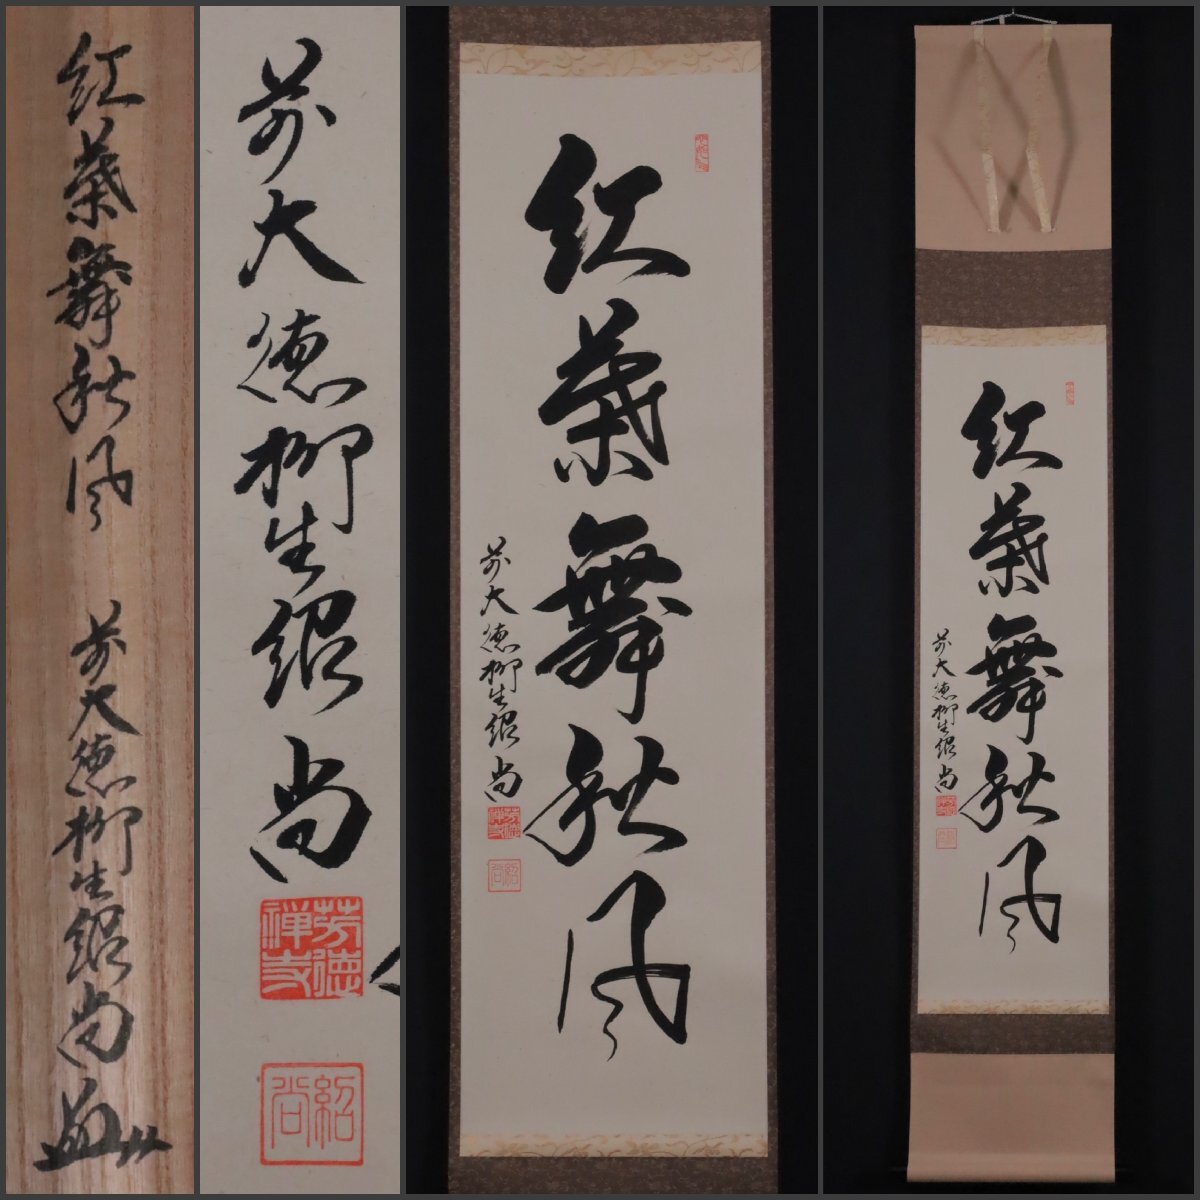 紅葉舞秋風
前大徳柳生紹尚
前大徳柳生紹尚
芳徳
禅寺
紹
尚
紅葉舞秋風
前大徳柳生紹尚
芳徳
禅寺
紹
尚
紅葉舞秋風
前大徳柳生紹尚